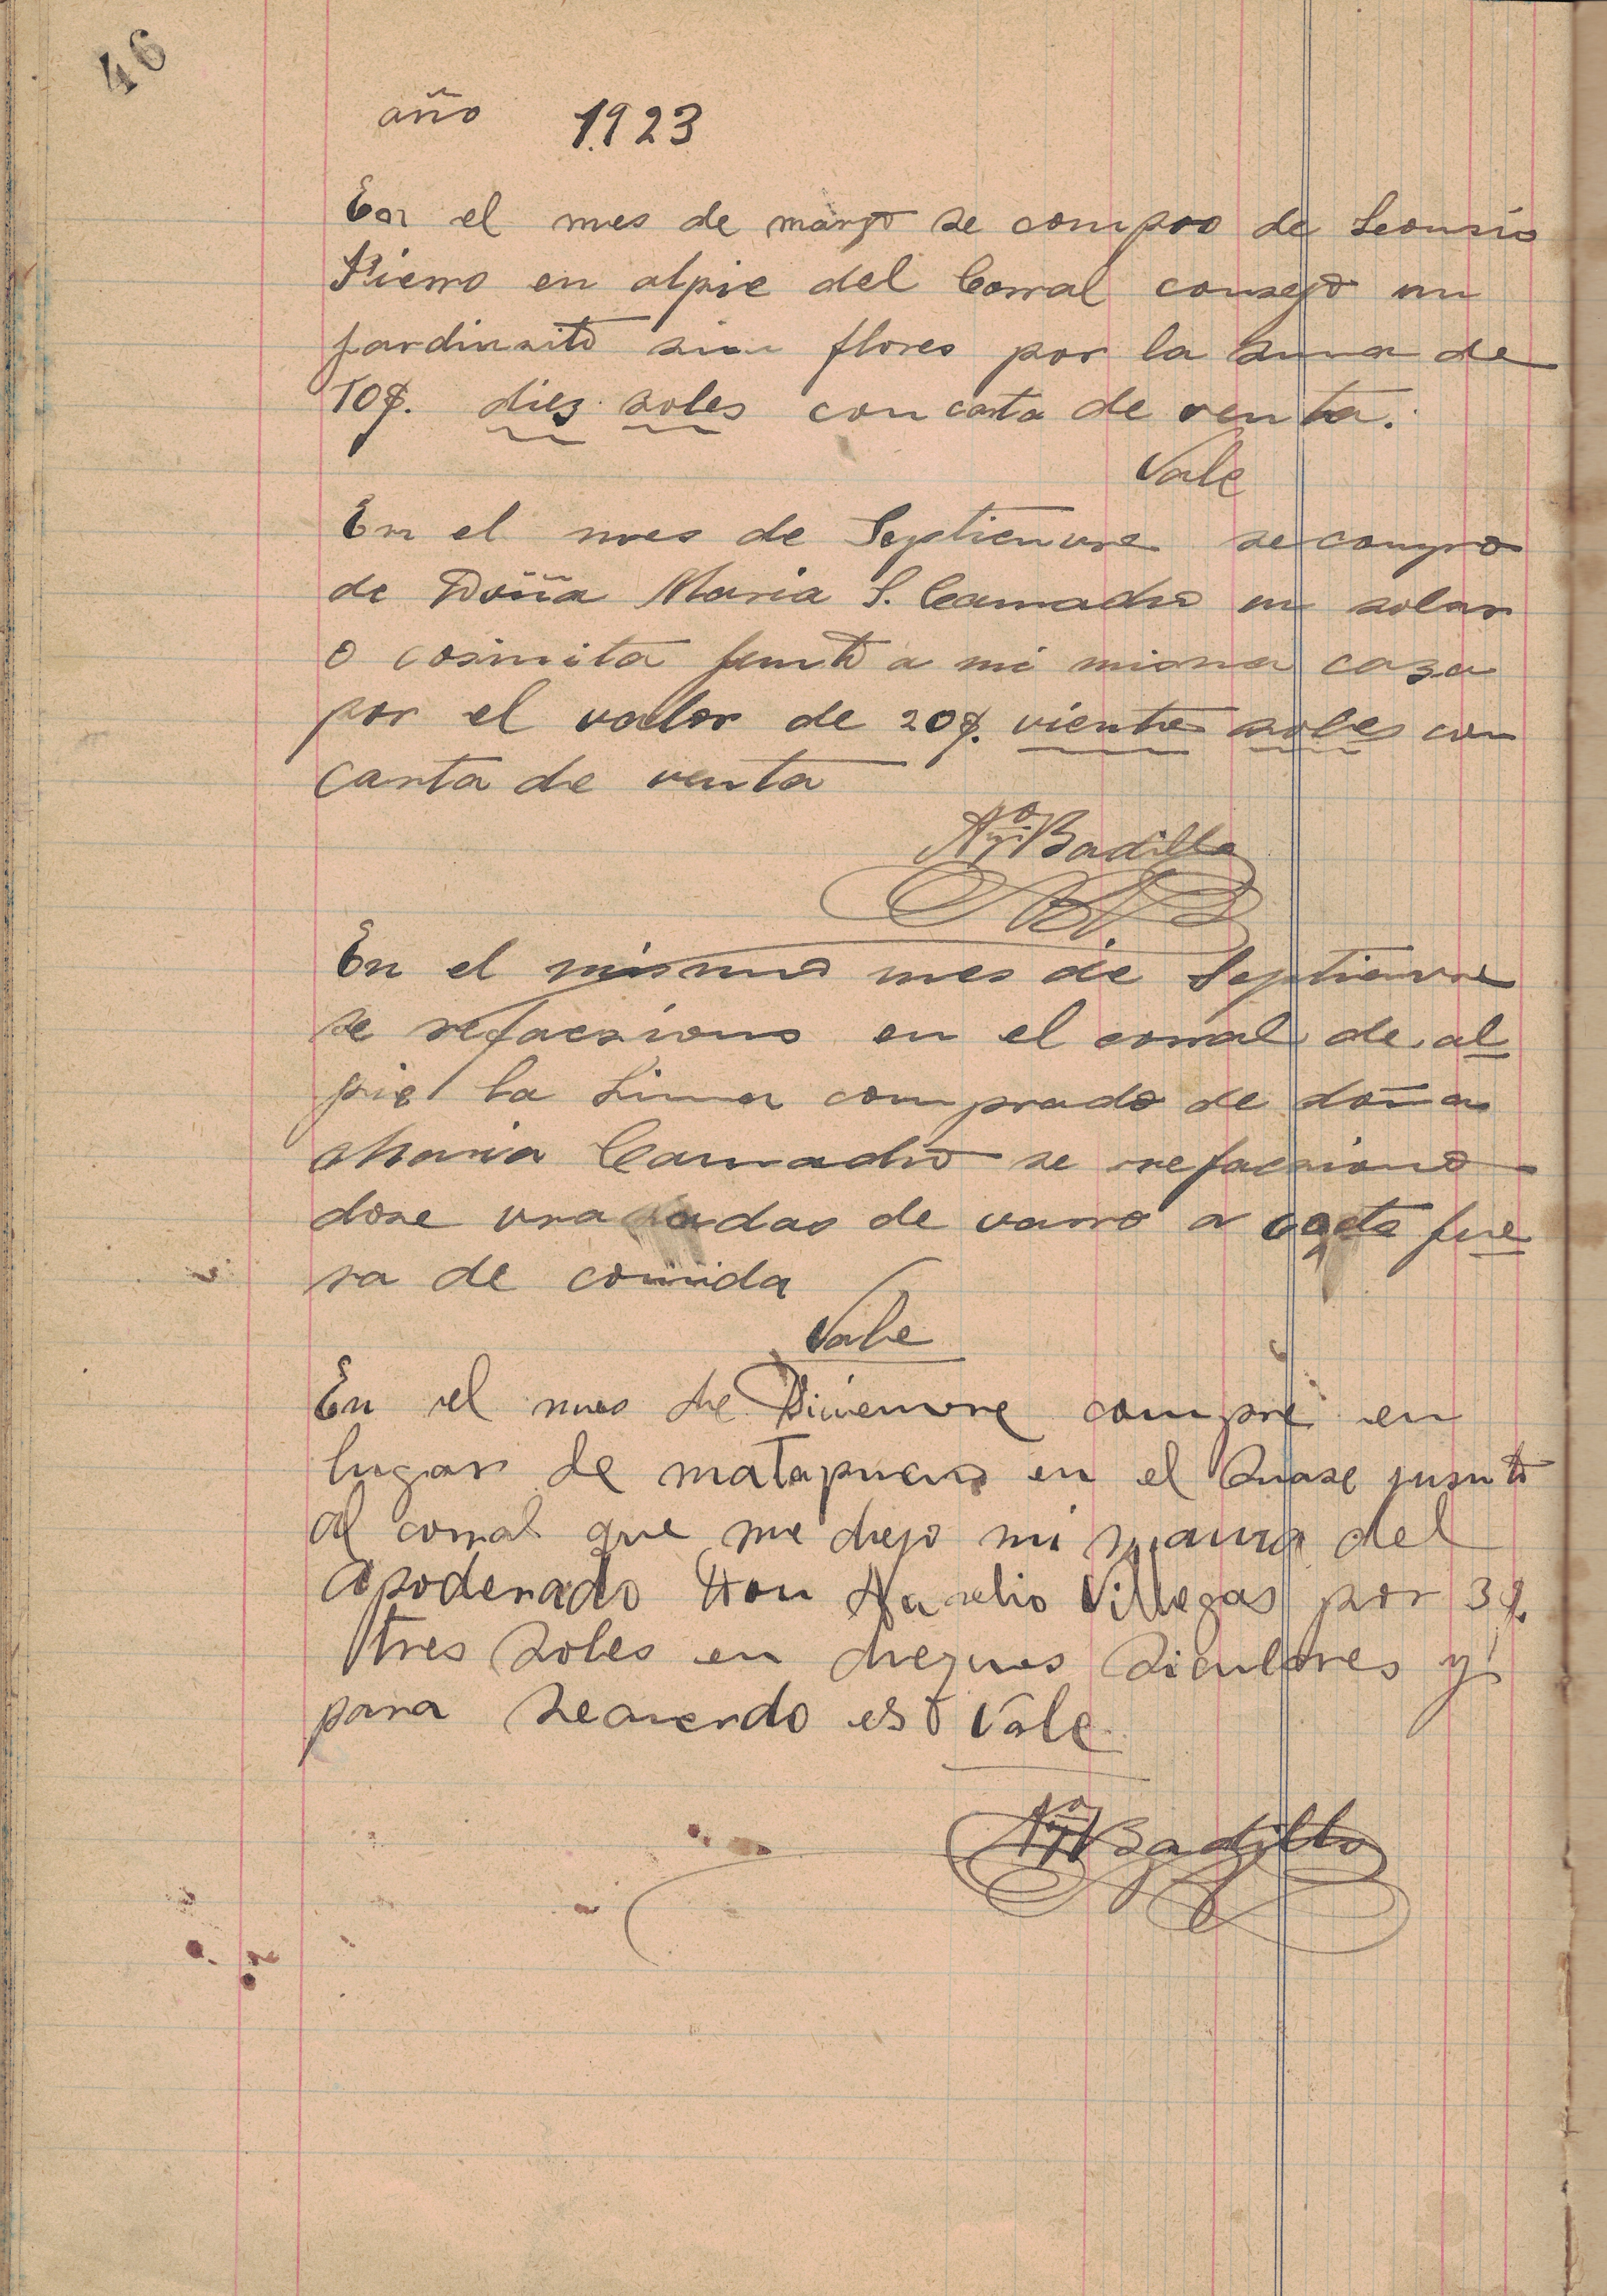 46
año 1.923
En el mes de março se compro de Leonsio
Fierro en alpie del Corral consejo un
jardinsito sin flores por la suma de
10$. diez soles con carta de venta.
Vale
En el mes de Septienvre se compro
de Doña Maria S. Camacho un solar
o cosinita junto a mi misma caza
por el valor de 20$. viente soles con
carta de venta
Badillo
En el mismo mes de Septienvre
se refacsiono en el corral de al
pie la comprado de doña
Maria Camacho se refacsiono
dose vrasadas de varro a fue
ra de comida
Vale
En el mes de Dicienvre compre en
lugar de matapuquio en el junto
al corral que me dejo mi mama del
Apoderado Don Aurelio Villegas por 3$.
tres soles en cheques y
para recuerdo esto Vale
Badillo